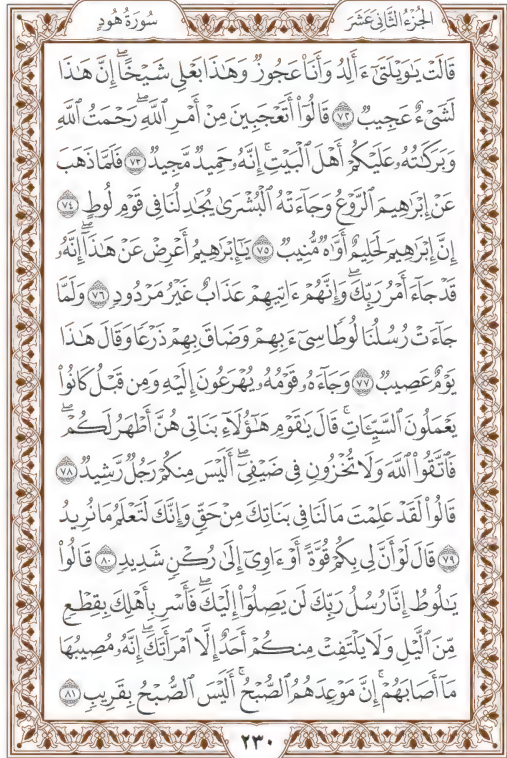 سُورَةُ هُودٍ
الجُزْءُ الثَّانِي عَشَرَ
قَالَتْ يَٰوَيْلَتَىٰٓ ءَأَلِدُ وَأَنَا۠ عَجُوزٌ وَهَٰذَا بَعْلِى شَيْخًا ۖ إِنَّ هَٰذَا
لَشَىْءٌ عَجِيبٌ ٧٢ قَالُوٓا۟ أَتَعْجَبِينَ مِنْ أَمْرِ ٱللَّهِ ۖ رَحْمَتُ ٱللَّهِ
وَبَرَكَٰتُهُۥ عَلَيْكُمْ أَهْلَ ٱلْبَيْتِ ۚ إِنَّهُۥ حَمِيدٌ مَّجِيدٌ ٧٣ فَلَمَّا ذَهَبَ
عَنْ إِبْرَٰهِيمَ ٱلرَّوْعُ وَجَآءَتْهُ ٱلْبُشْرَىٰ يُجَٰدِلُنَا فِى قَوْمِ لُوطٍ ٧٤
إِنَّ إِبْرَٰهِيمَ لَحَلِيمٌ أَوَّٰهٌ مُّنِيبٌ ٧٥ يَٰٓإِبْرَٰهِيمُ أَعْرِضْ عَنْ هَٰذَآ ۖ إِنَّهُۥ
قَدْ جَآءَ أَمْرُ رَبِّكَ ۖ وَإِنَّهُمْ ءَاتِيهِمْ عَذَابٌ غَيْرُ مَرْدُودٍ ٧٦ وَلَمَّا
جَآءَتْ رُسُلُنَا لُوطًا سِىٓءَ بِهِمْ وَضَاقَ بِهِمْ ذَرْعًا وَقَالَ هَٰذَا
يَوْمٌ عَصِيبٌ ٧٧ وَجَآءَهُۥ قَوْمُهُۥ يُهْرَعُونَ إِلَيْهِ وَمِن قَبْلُ كَانُوا۟
يَعْمَلُونَ ٱلسَّيِّـَٔاتِ ۚ قَالَ يَٰقَوْمِ هَٰٓؤُلَآءِ بَنَاتِى هُنَّ أَطْهَرُ لَكُمْ ۖ
فَٱتَّقُوا۟ ٱللَّهَ وَلَا تُخْزُونِ فِى ضَيْفِىٓ ۖ أَلَيْسَ مِنكُمْ رَجُلٌ رَّشِيدٌ ٧٨
قَالُوا۟ لَقَدْ عَلِمْتَ مَا لَنَا فِى بَنَاتِكَ مِنْ حَقٍّ وَإِنَّكَ لَتَعْلَمُ مَا نُرِيدُ
٧٩ قَالَ لَوْ أَنَّ لِى بِكُمْ قُوَّةً أَوْ ءَاوِىٓ إِلَىٰ رُكْنٍ شَدِيدٍ ٨٠ قَالُوا۟
يَٰلُوطُ إِنَّا رُسُلُ رَبِّكَ لَن يَصِلُوٓا۟ إِلَيْكَ ۖ فَأَسْرِ بِأَهْلِكَ بِقِطْعٍ
مِّنَ ٱلَّيْلِ وَلَا يَلْتَفِتْ مِنكُمْ أَحَدٌ إِلَّا ٱمْرَأَتَكَ ۖ إِنَّهُۥ مُصِيبُهَا
مَآ أَصَابَهُمْ ۚ إِنَّ مَوْعِدَهُمُ ٱلصُّبْحُ ۚ أَلَيْسَ ٱلصُّبْحُ بِقَرِيبٍ ٨١
٢٣٠